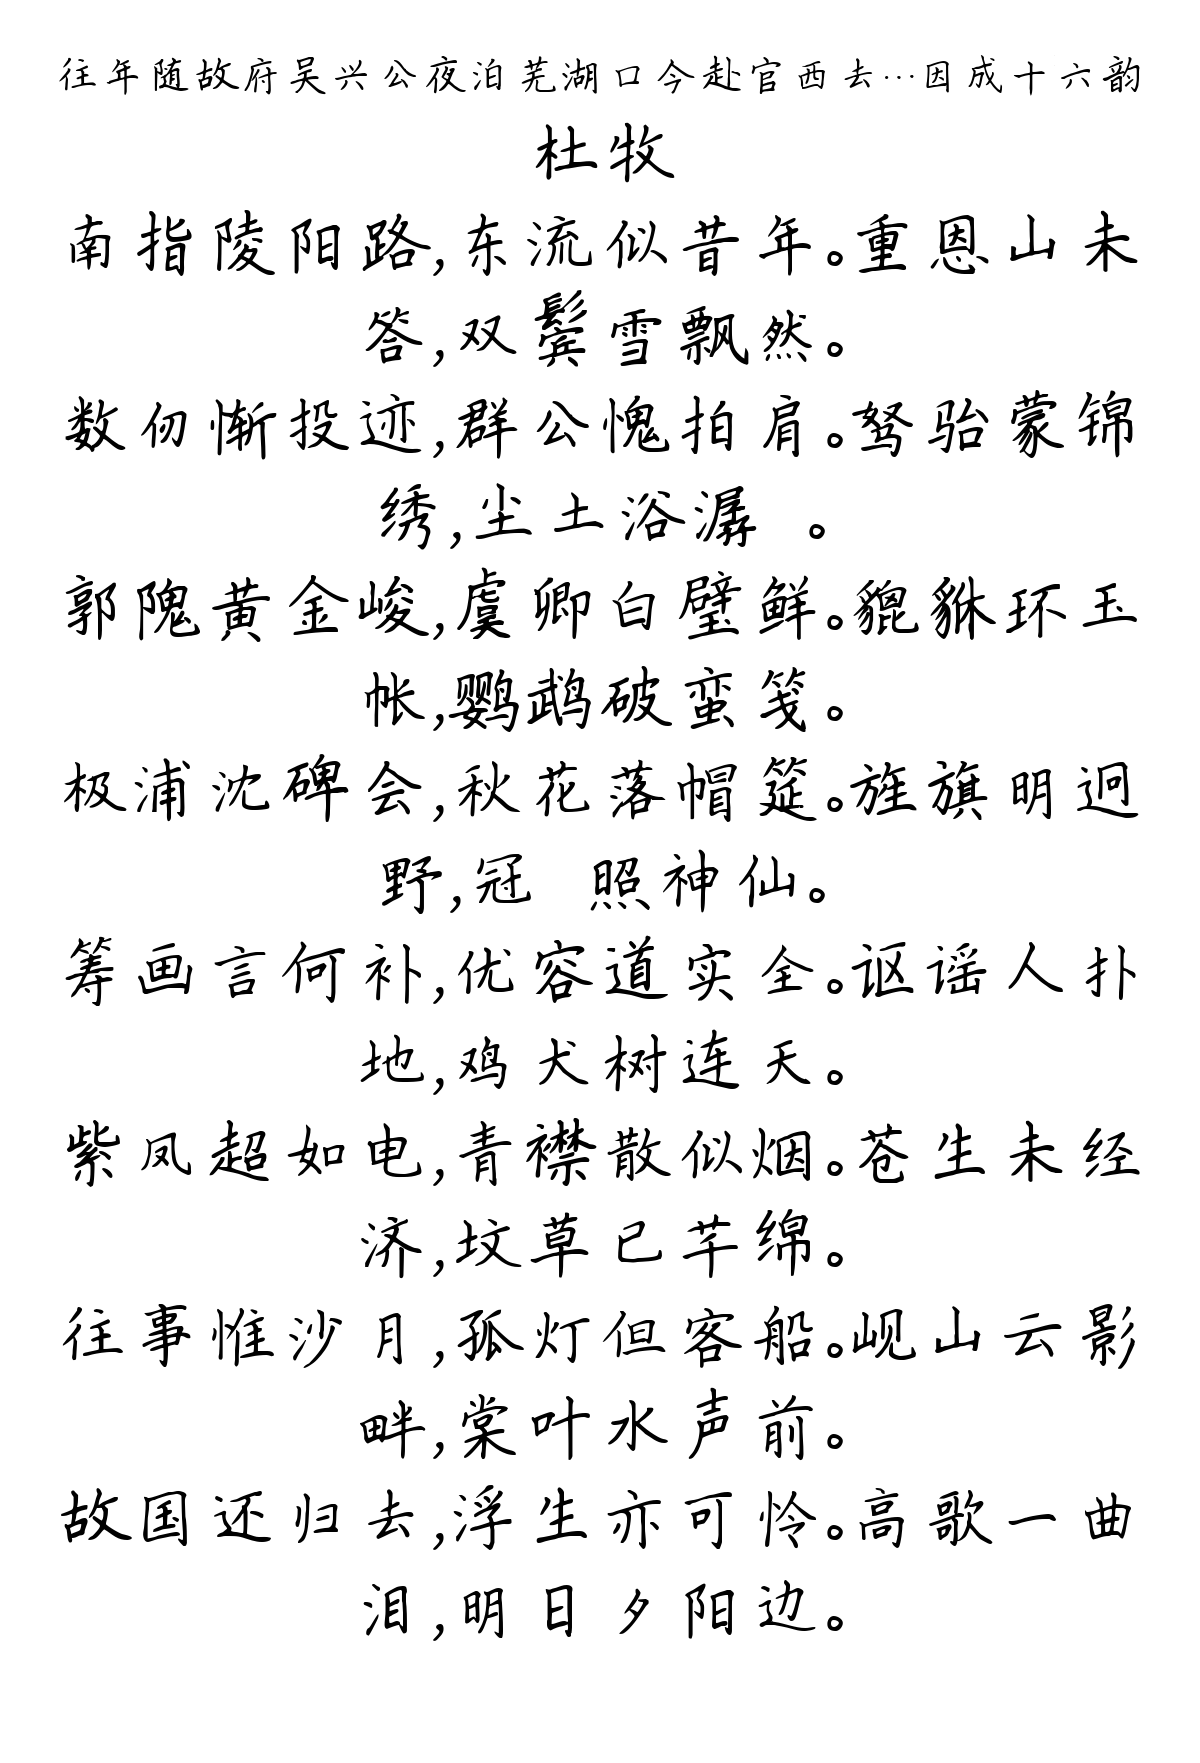 往年随故府吴兴公夜泊芜湖口今赴官西去…因成十六韵
杜牧
南指陵阳路,东流似昔年。重恩山未
答,双鬓雪飘然。
数仞惭投迹,群公愧拍肩。驽骀蒙锦
绣,尘土浴潺 。
郭隗黄金峻,虞卿白璧鲜。貔貅环玉
帐,鹦鹉破蛮笺。
极浦沈碑会,秋花落帽筵。旌旗明迥
野,冠 照神仙。
筹画言何补,优容道实全。讴谣人扑
地,鸡犬树连天。
紫凤超如电,青襟散似烟。苍生未经
济,坟草已芊绵。
往事惟沙月,孤灯但客船。岘山云影
畔,棠叶水声前。
故国还归去,浮生亦可怜。高歌一曲
泪,明日夕阳边。